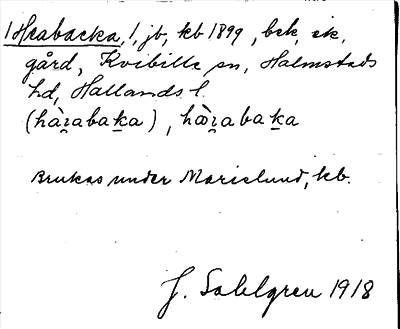 1 Harabacka, 1, jb, kb 1899, bek, ek,
gård, Kvibille sn, Halmstads
hd, Hallands l.
(hàr̯abaḵa), hòr̯abaḵa
Brukas under Marielund, kb.
J. Sahlgren 1918